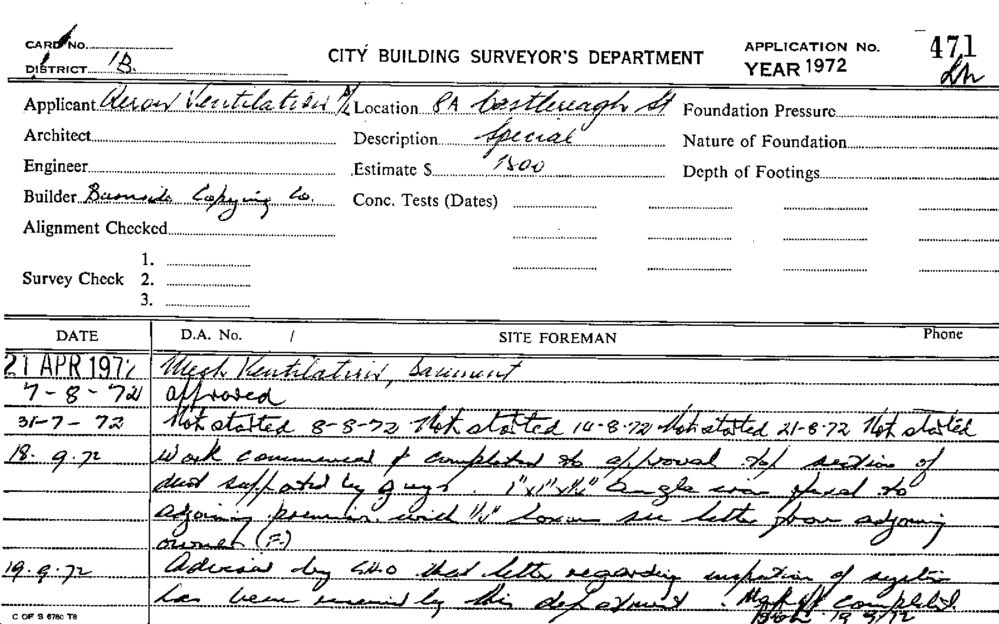 CARD No.
DISTRICT 1B.
CITY BUILDING SURVEYOR'S DEPARTMENT
APPLICATION No. 471
YEAR 1972
Applicant Ventilation P/L Location 8A Castlereagh St Foundation Pressure
Architect Description Special Nature of Foundation
Engineer Estimate $ 1500 Depth of Footings
Builder Burnside Copying Co. Conc. Tests (Dates)
Alignment Checked
1.
Survey Check 2.
3.
DATE D.A. No. / SITE FOREMAN Phone
21 APR 197 Mech Ventilation, Basement
7-8-72 approved
31-7-72 Not started 8-8-72 Not started 14-8-72 Not started 21-8-72 Not started
18.9.72 Work commenced & completed to approval top section of
duct supported by guys. 1"x1"x angle iron fixed to
adjoining premises with see letter from adjoining
owner (F.)
19.9.72 Advised by that letter regarding inspection of
has been received by this department. completed.
19 9/72
C OF S 6780 T8